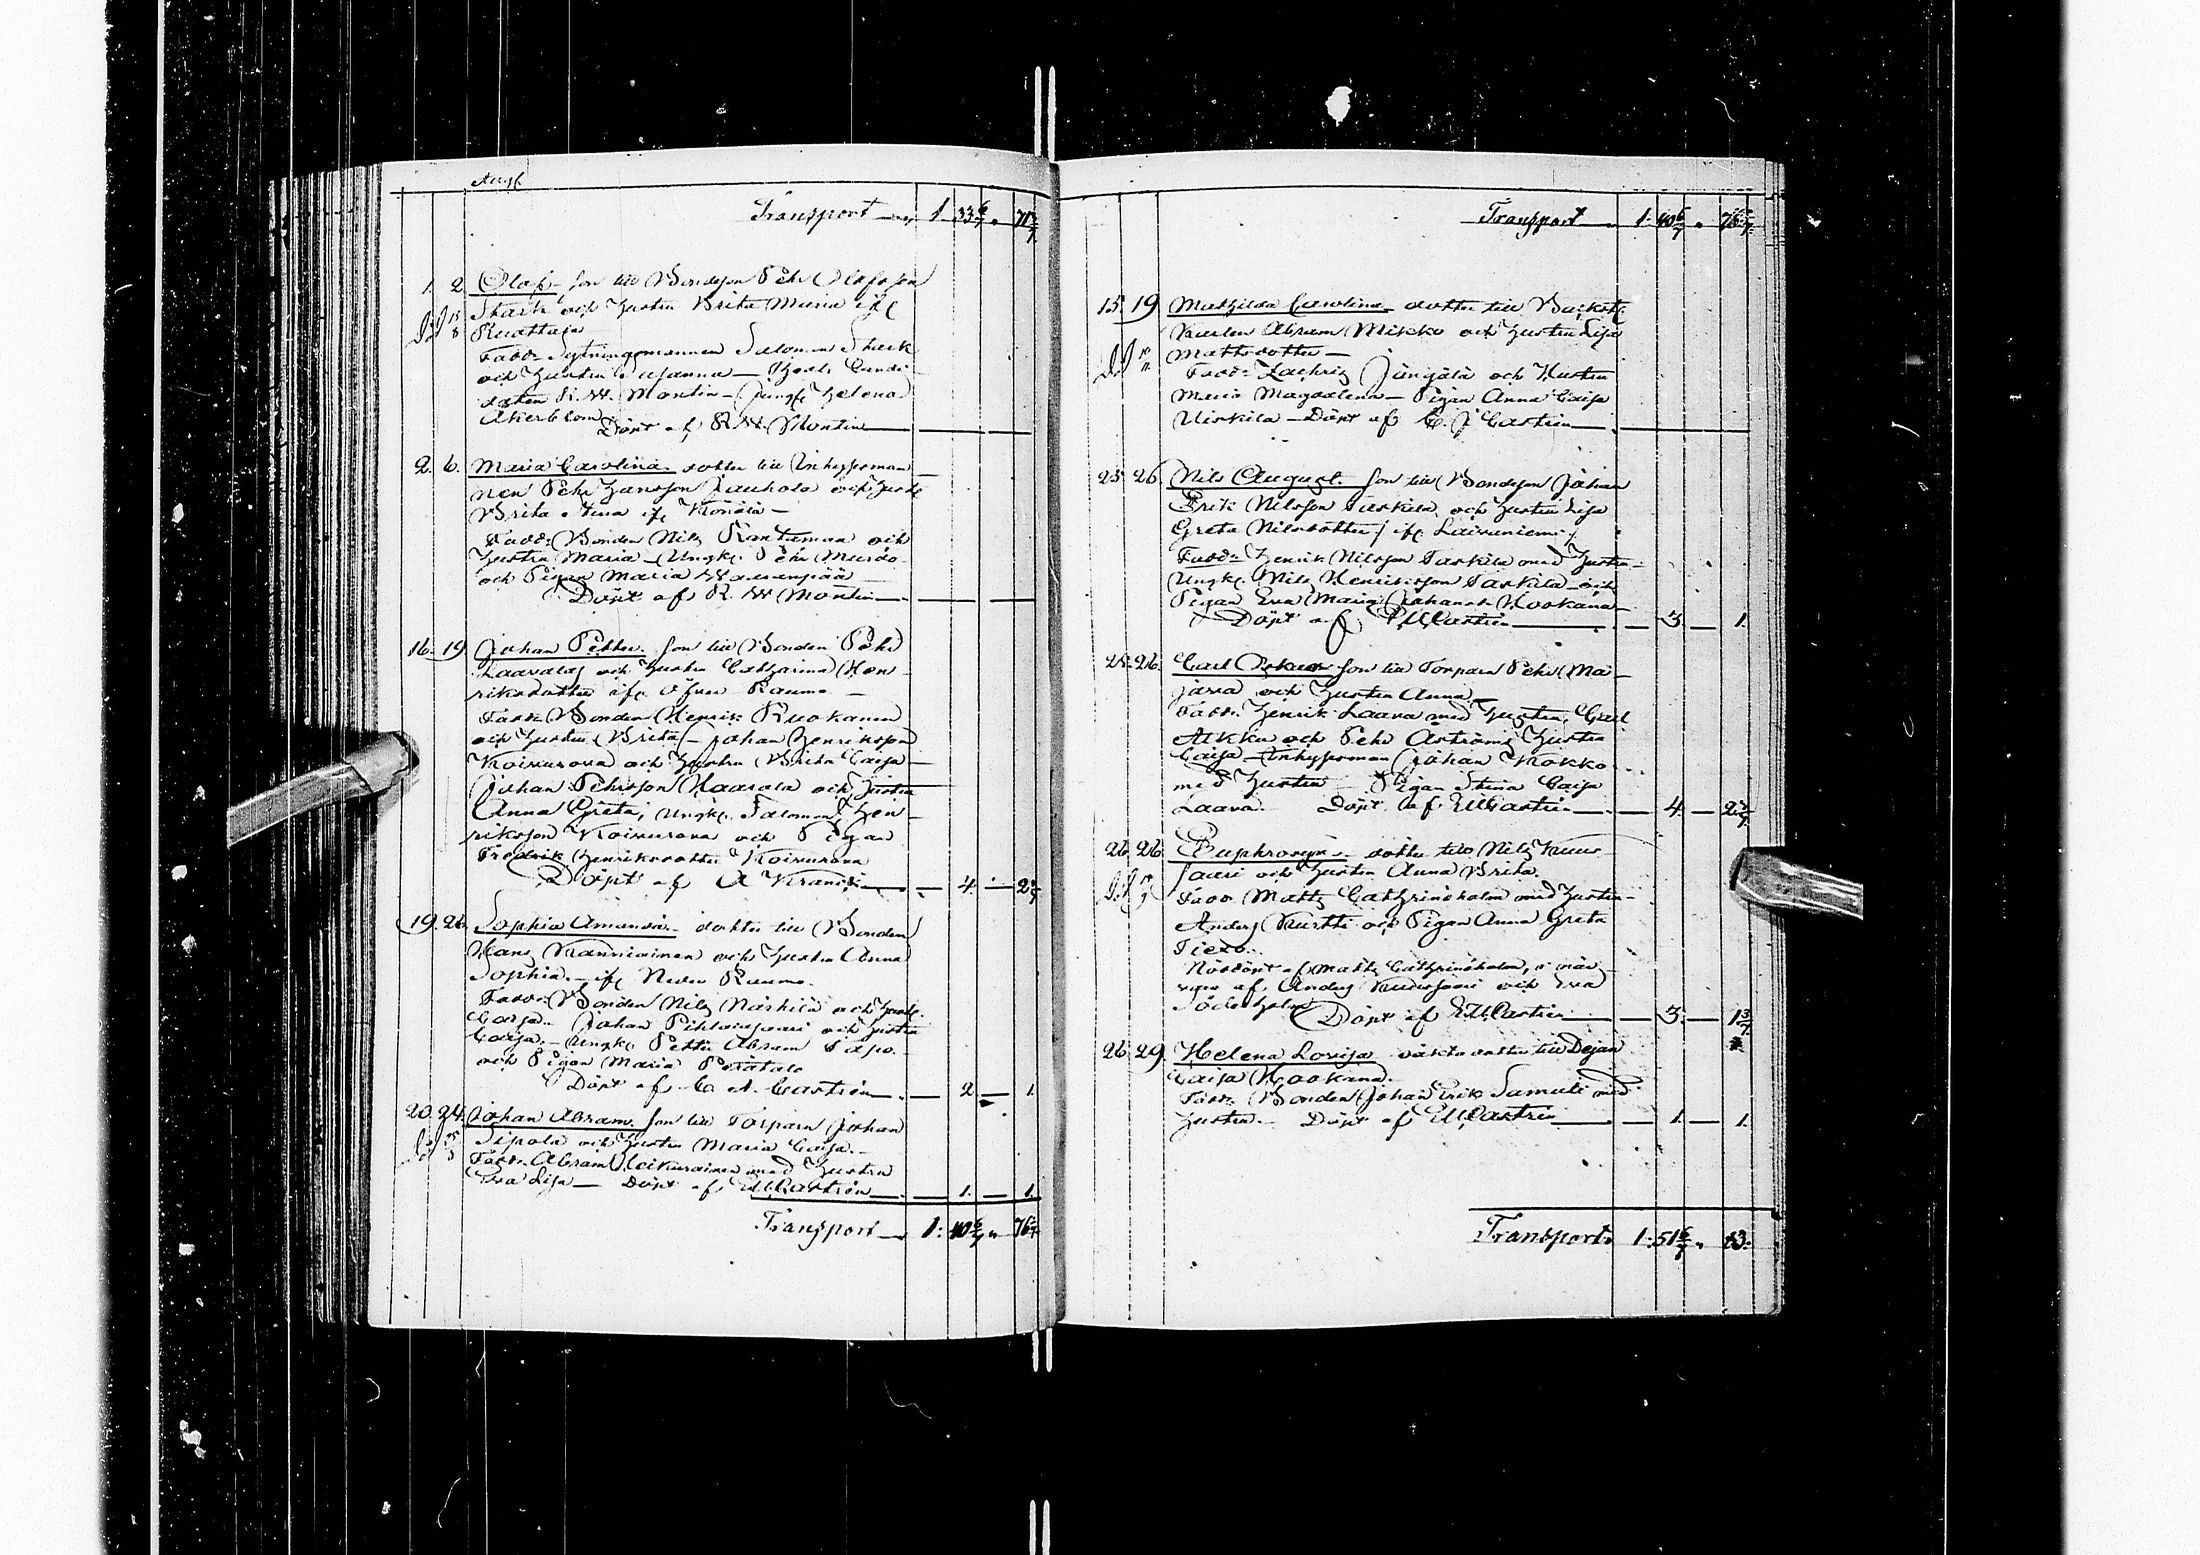 Aug.
Transport 1. 33 6/7 "
1. 2. Olof son till Bondeson Pehr Olofsson
Stark och Hustru Brita Maria ifr.
Ruottaja
Fadd. Sytningsmannen Salomon Stark
och Hustru Susanna
R. W. Montin Jungf. Helena
Åkerblom Döpt af R. W. Montin
2. 6. Maria Carolina dotter till Inhysesman
nen Pehr Hansson Jauhola och Hustr.
Brita Stina ifr.
Fadd. Bonden Nils Rantaman och
Hustru Maria Ungk. Pehr
och Pigan Maria
Döpt af R. W. Montin
16. 19. Johan Petter son till Bonden Pehr
och Hustru Catharina Hen
riksdotter ifr. Öfver Raumo
Fadd. Bonden Henrik Ruokanen
och Hustru Brita Johan Henriksson
Koivurova och Hustru Brita Caisa
Johan Pehrsson Haarala och Hustru
Anna Greta, Ungk. Salomon Hen
riksson Koivurova och Pigan
Fredrik. Henriksdotter Koivurova
Döpt af A 4. 2
19. 26. Sophia Amanda dotter till Bonden
Hans Kanniainen och Hustru Anna
Sophia ifr. Neder Raumo
Fadd. Bonden Nils Närkilä och Hustr.
Caisa Johan Pihlajasaari och Hustru
Caisa Ungk. Petter Abram
och Pigan Maria Perätalo
Döpt af C. A. Castrén 2 1.
20. 24. Johan Abram son till Torparn Johan
Sipola och Hustru Maria Caisa
Fadd. Abram Leikurainen med Hustru
Eva Lisa Döpt af E M Castrén 1. 1.
Transport 1. 40 6/7 "
Transport 1. 40 6/7 "
15. 19. Mathilda Carolina dotter till Backst.
Karlen Abram Mikko och Hustru Lisa
Mattsdotter
Fadd. Zachris Jüngälä och Hustru
Maria Magdalena Pigan Anna Caisa
Uirkila Döpt af C. J Castrén
25. 26. Nils August son till Bondeson Johan
Erik Nilsson Taskila och Hustru Lisa
Greta Nilsdotter ifr. Laivaniemi
Fadd. Henrik Nilsson Taskila med Hustru
Ungk. Nils Henriksson Taskila och
Pigan Eva Maria Hookana
Döpt af E M Castrén 3. 1.
25. 26. Carl Oskar son till Torparn Pehr Ma
java och Hustru Anna
Fadd. Henrik Laava med Hustru, Carl
Alkku och Pehr Åströms Hustru
Caisa Inhysesman Johan Kokko
med Hustru Pigan Stina Caisa
Laava Döpt af E M Castrén 4. 2
26. 26. Euphrosyne dotter till Nils Kuu
saari och Hustru Anna Brita
Fadd. Matts Cathrineholm med Hustru
Anders Kurtti och Pigan Anna Greta
Tiero
Nöddöpt af Matts Cathrineholm, i när
varo af Anders Kuusisaari och Eva
Söderholm Döpt af E M Castrén 3. 1 3/7
26. 29. Helena Lovisa oäkta dotter till Dejan
Caisa Hookana
Fadd. Bonden Johan Erik Samuli med
Hustru Döpt af E M Castrén 1. 1.
Transport 1. 51 6/7 " 83.